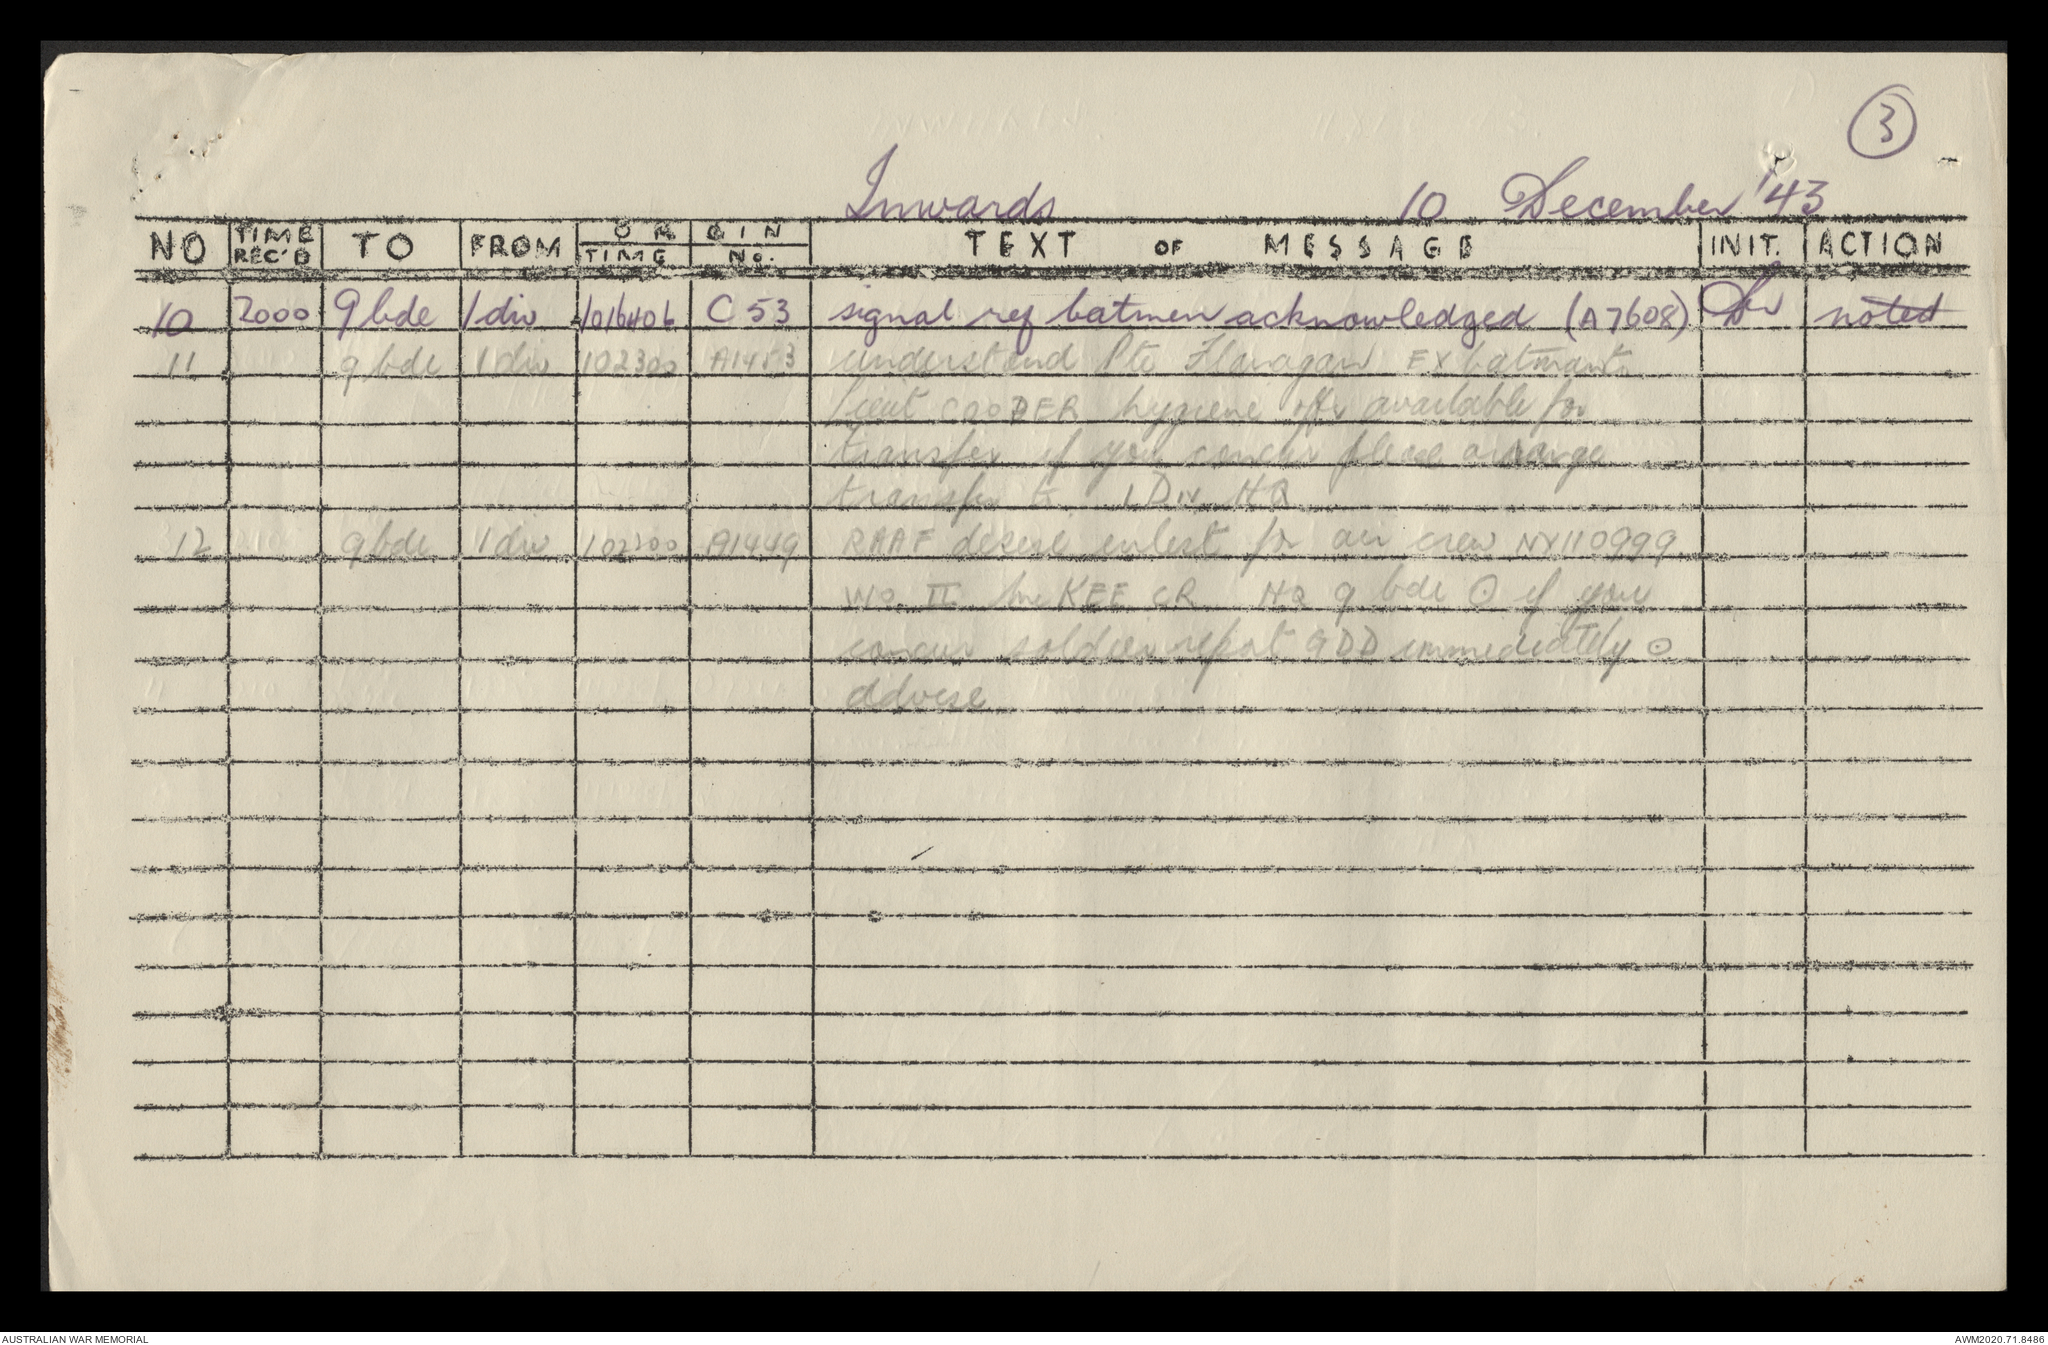 3
Inwards 10 December '43
NO TIME REC'D TO FROM ORIGIN TIME No. TEXT OF MESSAGE INIT. ACTION
10 2000 9 bde 1 div C 53 signal ref batmen acknowledged (A7608) noted
11 9 bde 1 div 102300 A1453 understand Pte Flanagan EX batman to
Lieut COOPER hygiene offr available for
transfer if you concur please arrange
transfer to 1 Div HQ
12 9 bde 1 div A1449 RAAF desire enlist for air crew NX110999
WO II McKEE CR HQ 9 bde ⊙ if you
concur soldier report GDD immediately ⊙
advise
AUSTRALIAN WAR MEMORIAL AWM2020.71.8486